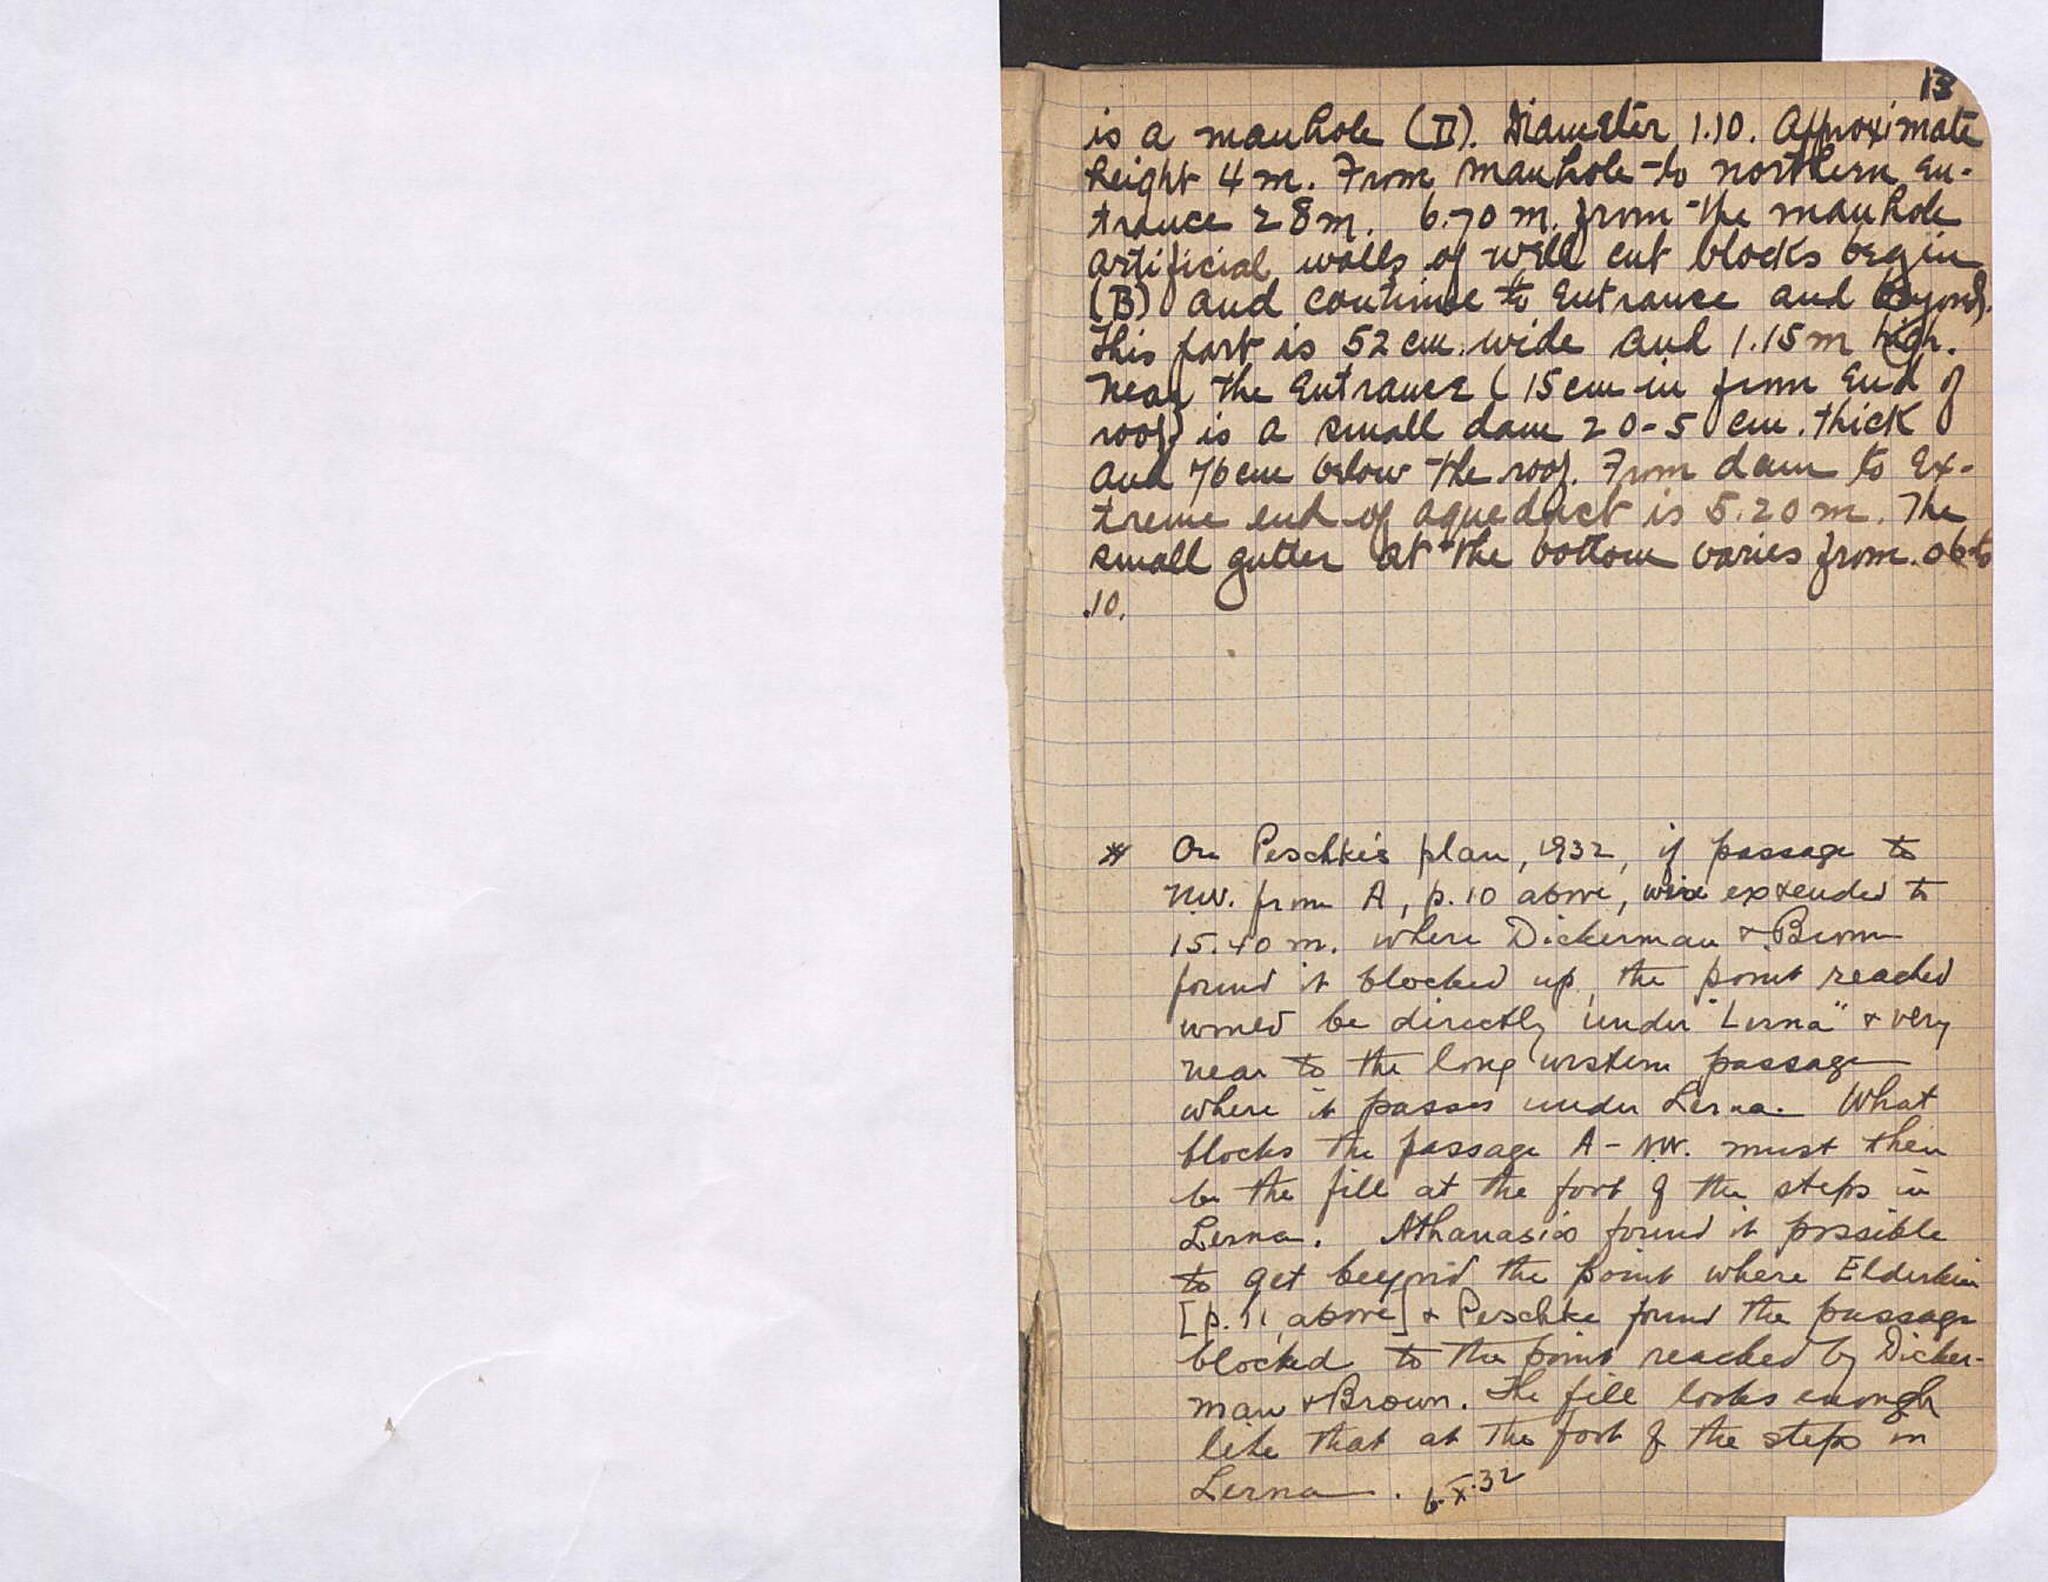 13
is a manhole (II). Diameter 1.10. Approximate
height 4 m. From manhole to northern en-
trance 28 m. 6.70 m. from the manhole
artificial walls of well cut blocks begin
(B) and continue to entrance and beyond.
This part is 52 cm. wide and 1.15 m high.
Near the entrance (15 cm in from end of
roof) is a small dam 20-5 cm. thick
and 76 cm below the roof. From dam to ex-
treme end of aqueduct is 5.20 m. The
small gutter at the bottom varies from .06 to
.10.
* On Peschke's plan, 1932, if passage to
NW. from A, p. 10 above, were extended to
15.40 m. where Dickerman & Brown
found it blocked up, the point reached
would be directly under "Lerna" & very
near to the long western passage
where it passes under Lerna. What
blocks the passage A - NW. must then
be the fill at the foot of the steps in
Lerna. Athanasios found it possible
to get beyond the point where Elderkin
[p. 11, above] & Peschke found the passage
blocked to the point reached by Dicker-
man & Brown. The fill looks enough
like that at the foot of the steps in
Lerna. 6.X.32